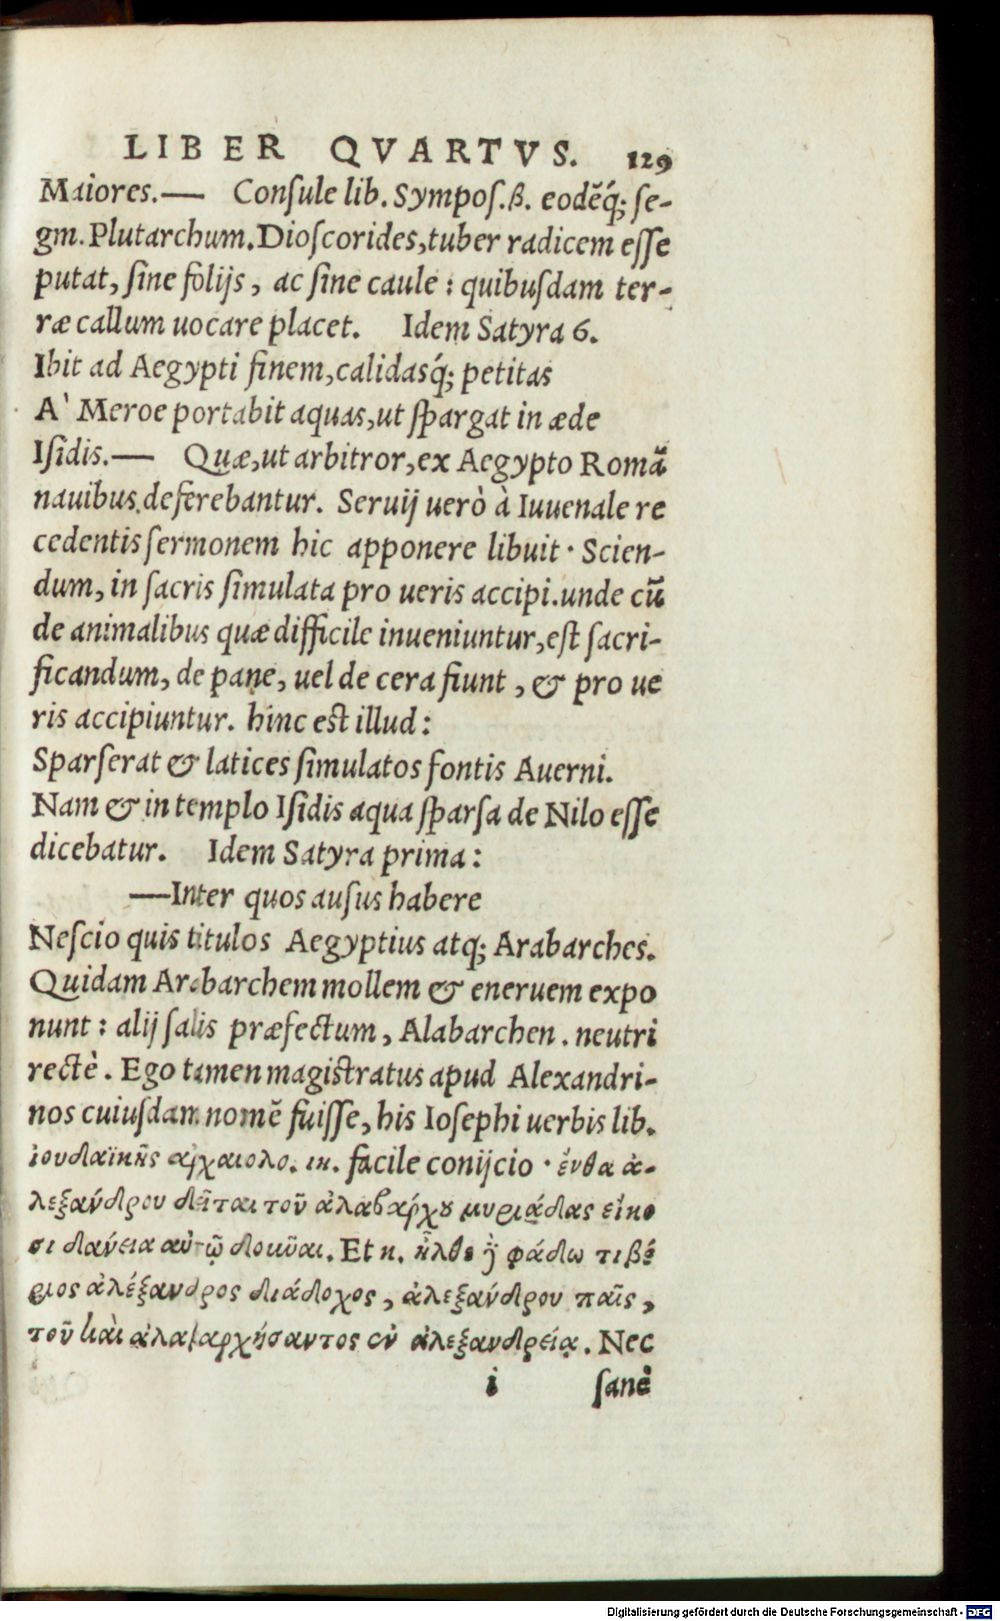 LIBER QVARTVS. 129
Maiores.— Conſule lib. Sympoſ.β. eodẽq́; ſe-
gm. Plutarchum. Dioſcorides, tuber radicem eſſe
putat, ſine folijs, ac ſine caule: quibuſdam ter-
ræ callum uocare placet. Idem Satyra 6.
Ibit ad Aegypti finem, calidasq́; petitas
A` Meroe portabit aquas, ut ſpargat in æde
Iſidis.— Quæ, ut arbitror, ex Aegypto Romã
nauibus deferebantur. Seruij uerò à Iuuenale re
cedentis ſermonem hic apponere libuit. Scien-
dum, in ſacris ſimulata pro ueris accipi. unde cũ
de animalibus quæ difficile inueniuntur, eſt ſacri-
ficandum, de pane, uel de cera fiunt, & pro ue
ris accipiuntur. hinc est illud:
Sparſerat & latices ſimulatos fontis Auerni.
Nam & in templo Iſidis aqua ſparſa de Nilo eſſe
dicebatur. Idem Satyra prima:
—Inter quos auſus habere
Neſcio quis titulos Aegyptius atq; Arabarches.
Quidam Arabarchem mollem & eneruem expo
nunt: alij ſalis præfectum, Alabarchen. neutri
rectè. Ego tamen magiſtratus apud Alexandri-
nos cuiuſdam nomẽ fuiſſe, his Ioſephi uerbis lib.
ἰουδαϊκῆς ἀρχαιολο. ιη. facile conijcio. ἔνθα ἀ-
λεξάνδρου δεῖται τοῦ ἀλαβάρχου μυριάδας εἴκο
σι δάνεια αὐτῷ δοκῦαι. Et κ. ἦλθε φάδω τιβέ
ριος ἀλέξανδρος διάδοχος, ἀλεξάνδρου παῖς,
τοῦ καὶ ἀλαβαρχήσαντος ἐν ἀλεξανδρείᾳ. Nec
i ſanè
Digitalisierung gefördert durch die Deutsche Forschungsgemeinschaft - DFG